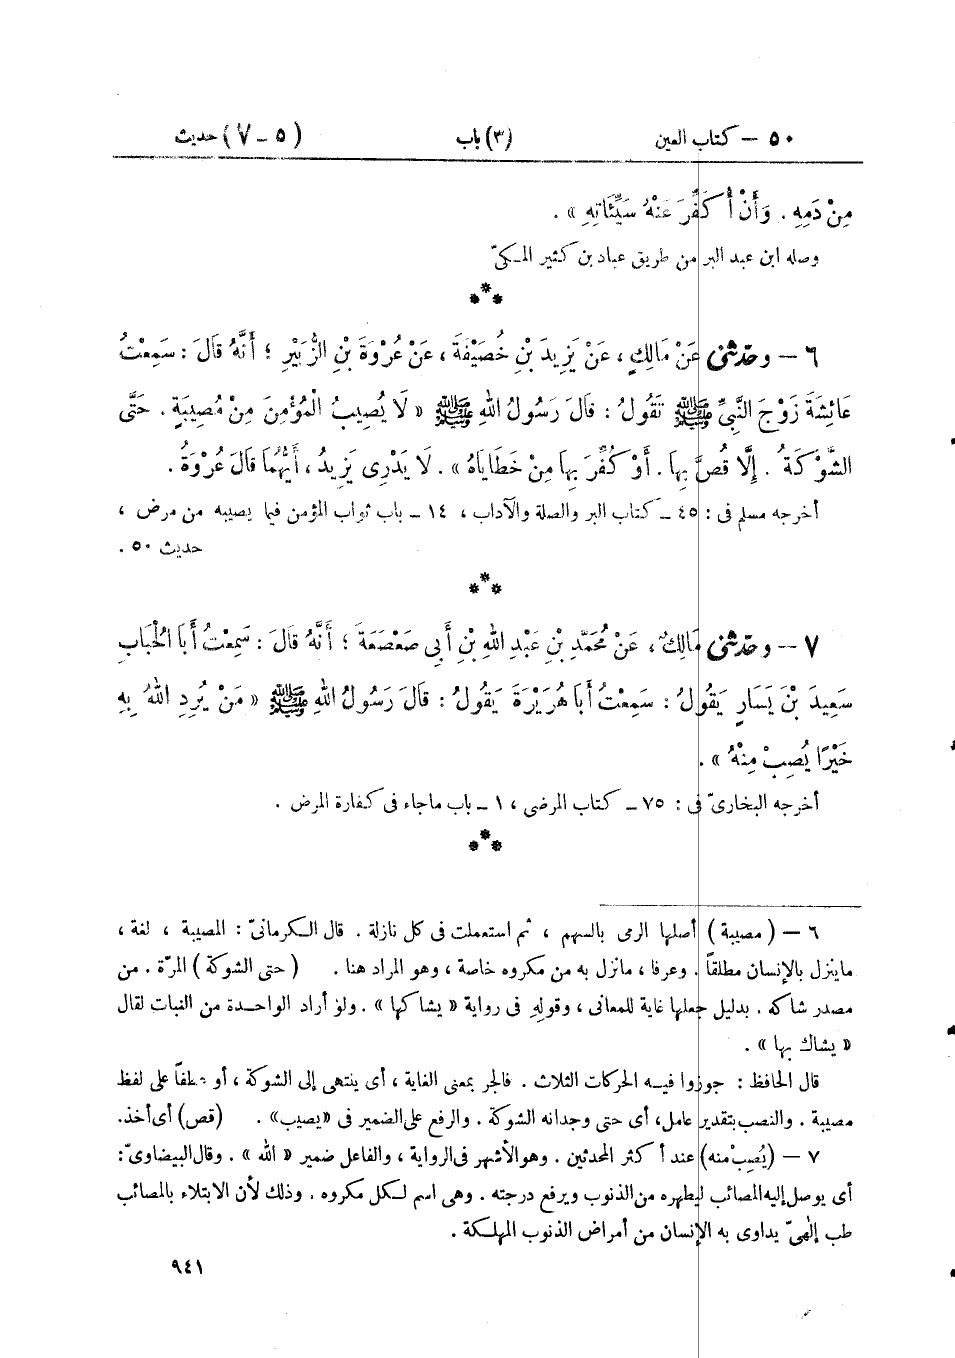 ٥٠ – كتاب العين (٣) باب (٥ – ٧) حديث
مِنْ دَمِهِ . وَأَنْ أُكَفِّرَ عَنْهُ سَيِّئَاتِهِ » .
وصله ابن عبد البر من طريق عباد بن كثير المكىّ
***
٦ – وحدّثنى عَنْ مَالِكٍ ، عَنْ يَزِيدَ بْنِ خُصَيْفَةَ ، عَنْ عُرْوَةَ بْنِ الزُّبَيْرِ ؛ أَنَّهُ قَالَ : سَمِعْتُ
عَائِشَةَ زَوْجَ النَّبِيِّ ﷺ تَقُولُ : قَالَ رَسُولُ اللهِ ﷺ « لَا يُصِيبُ الْمُؤْمِنَ مِنْ مُصِيبَةٍ . حَتَّى
الشَّوْكَةُ . إِلَّا قُصَّ بِهَا . أَوْ كُفِّرَ بِهَا مِنْ خَطَايَاهُ » . لَا يَدْرِى يَزِيدُ ، أَيُّهُمَا قَالَ عُرْوَةُ .
أخرجه مسلم فى : ٤٥ – كتاب البر والصلة والآداب ، ١٤ – باب ثواب المؤمن فيما يصيبه من مرض ،
حديث ٥٠ .
***
٧ – وحدّثنى مَالِكٌ ، عَنْ مُحَمَّدِ بْنِ عَبْدِ اللهِ بْنِ أَبِى صَعْصَعَةَ ؛ أَنَّهُ قَالَ : سَمِعْتُ أَبَا الْحُبَابِ
سَعِيدَ بْنَ يَسَارٍ يَقُولُ : سَمِعْتُ أَبَا هُرَيْرَةَ يَقُولُ : قَالَ رَسُولُ اللهِ ﷺ « مَنْ يُرِدِ اللهُ بِهِ
خَيْرًا يُصِبْ مِنْهُ » .
أخرجه البخارىّ فى : ٧٥ – كتاب المرضى ، ١ – باب ماجاء فى كفارة المرض .
***
٦ – (مصيبة) أصلها الرمى بالسهم ، ثم استعملت فى كل نازلة . قال الكرمانىّ : المصيبة ، لغة ،
ماينزل بالإنسان مطلقاً . وعرفا ، مانزل به من مكروه خاصة ، وهو المراد هنا . (حتى الشوكة) المرّة . من
مصدر شاكه . بدليل جعلها غاية للمعانى ، وقوله فى رواية « يشاكها » . ولو أراد الواحدة من النبات لقال
« يشاك بها » .
قال الحافظ : جوزوا فيه الحركات الثلاث . فالجر بمعنى الغاية ، أى ينتهى إلى الشوكة ، أو عطفاً على لفظ
مصيبة . والنصب بتقدير عامل، أى حتى وجدانه الشوكة . والرفع على الضمير فى «يصيب» . (قص) أى أخذ.
٧ – (يُصِبْ منه) عند أكثر المحدثين . وهو الأشهر فى الرواية ، والفاعل ضمير « الله » . وقال البيضاوىّ :
أى يوصل إليه المصائب ليطهره من الذنوب ويرفع درجته . وهى اسم لكل مكروه . وذلك لأن الابتلاء بالمصائب
طب إلٰهىّ يداوى به الإنسان من أمراض الذنوب المهلكة .
٩٤١